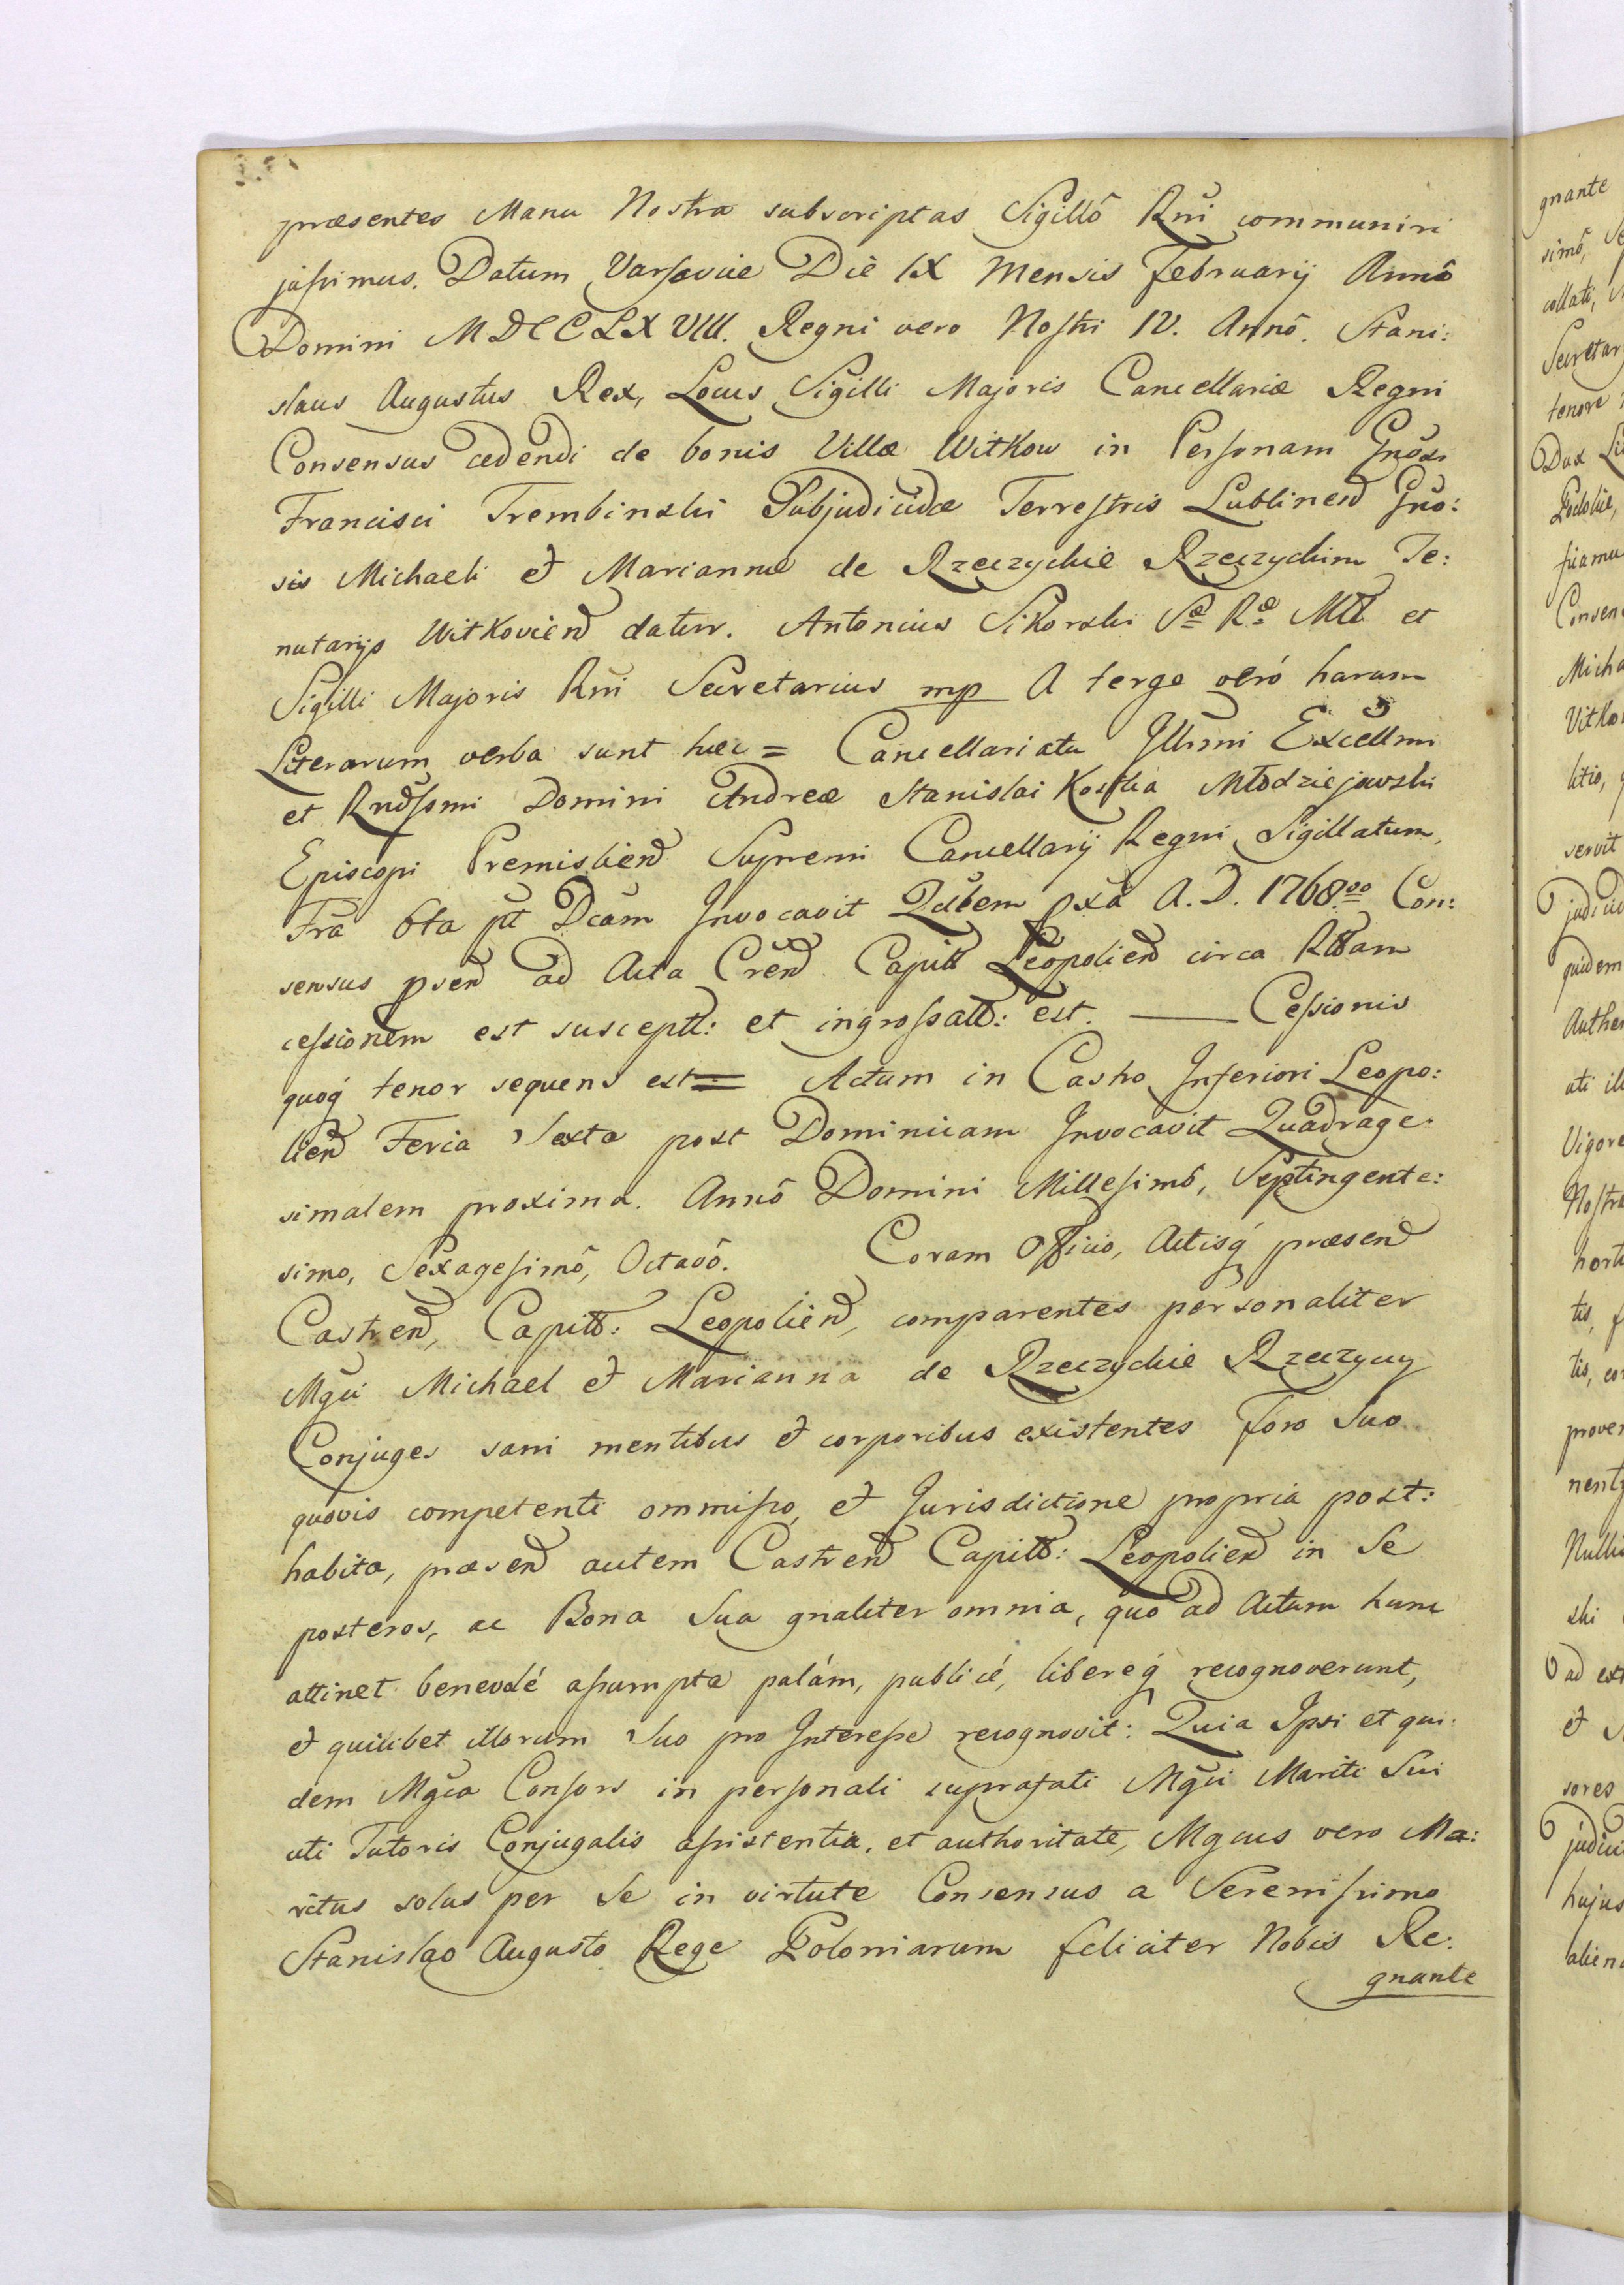 præsentes Manu Nostra subscriptas Sigillô Rni communiri
jussimus. Datum Varsaviæ Diê IX Mensis February Annô
Domini MDCCLXVIII. Regni vero Nostri IV. Annô. Stani:
slaus Augustus Rex, Locus Sigilli Majoris Cancellariæ Regni
Consensus cedendi de bonis Villæ Witkow in Personam Gnosi
Francisci Trembinski Subjudicidæ Terrestris Lublinen Gno:
sis Michaeli et Mariannæ de Rzeczyckie Rzeczyckim Te:
nutarys Witkovien datur. Antonius Sikorski Sæ Ræ Mtt et
Sigilli Majoris Rni Secretarius mp A tergo veró harum
Literarum verba sunt hæc = Cancellariatu Illmi Excellmi
et Rndssmi Domini Andreæ Stanislai Kostka Młodziejowski
Episcopi Premislien Supremi Cancellarij Regni Sigillatum.
Fra 6ta pt Dcam Invocavit Qdbem pxa A.D. 1768.vo Con:
sensus psen ad Acta Cren Capitt Leopolien circa Rttam
cessionem est suscept: et ingrossatt: est. —— Cessionis
quoq́ tenor sequens est = Actum in Castro Inferiori Leopo:
lien Feria Sexta post Dominicam Invocavit Quadrage:
simalem proxima. Annô Domini Millesimô, Septingente:
simo, Sexagesimô, Octavô. Coram Officio, Actisq́ præsen
Castren, Capitt: Leopolien, comparentes personaliter
Mgci Michael et Marianna de Rzeczyckie Rzeczyccy
Conjuges sani mentibus et corporibus existentes Foro Suo
quovis competenti ommisso, et Jurisdictione propria post:
habita, præsen autem Castren Capitt: Leopolien in Se
posteros, ac Bona Sua gnaliter omnia, quo ad Actum hunc
attinet benevolé assumpta palám, publicé, libereq́ recognoverunt,
et quilibet illorum Suo pro Interesse recognovit: Quia Ipsi et qui:
dem Mgca Consors in personali suprafati Mgci Mariti Sui
uti Tutoris Conjugalis assistentia, et authoritate, Mgcus vero Ma:
ritus solus per Se in virtute Consensus a Serenissimo
Stanislao Augusto Rege Poloniarum feliciter Nobis Re:
gnante
gnante
simô,
collati,
Secretar
tenore
Dux
Podoliæ,
Consen
Micha
Vitko
litio,
servit
quidem
Authen
ati
Vigore
Nostra
tis,
tis,
prove
Nulli
ski
ad ext
et
sores
judici
hujus
alien